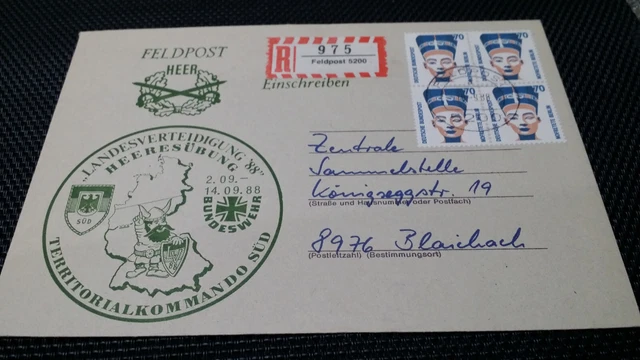 FELDPOST
HEER
R
975
Feldpost 5200
Einschreiben
70
70
70
70
DEUTSCHE BUNDESPOST
NOFRETETE BERLIN
DEUTSCHE BUNDESPOST
NOFRETETE BERLIN
"LANDESVERTEIDIGUNG '88"
HEERESÜBUNG
2.09.–
14.09.88
BUNDESWEHR
SÜD
TERRITORIALKOMMANDO SÜD
Zentrale
Sammelstelle
Königseggstr. 19
(Straße und Hausnummer oder Postfach)
8976 Blaichach
(Postleitzahl) (Bestimmungsort)